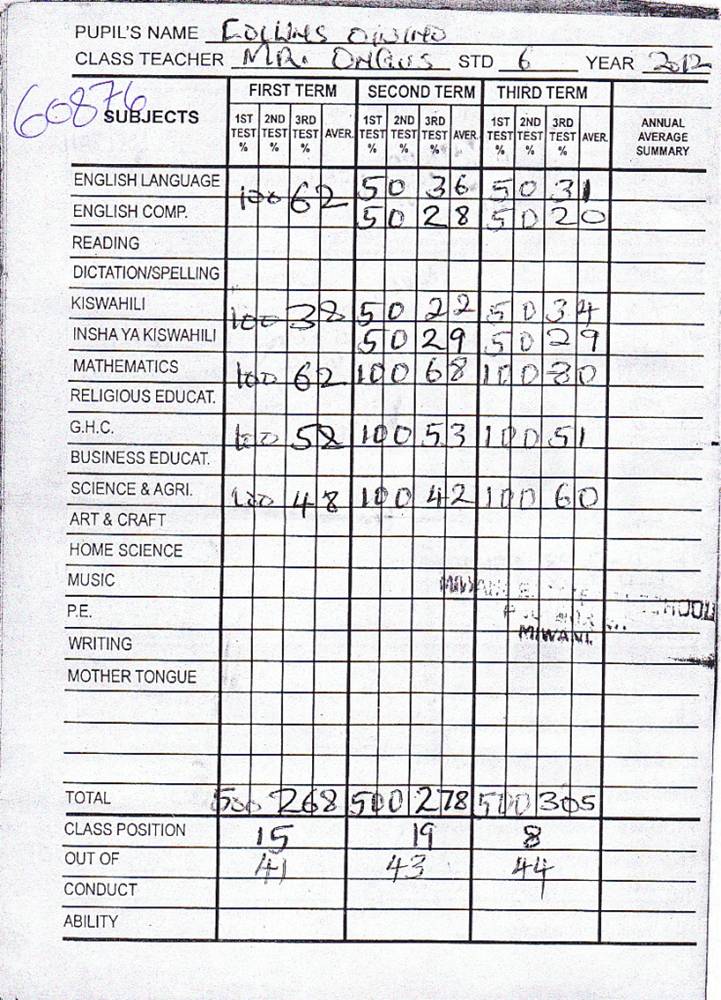 PUPIL'S NAME COLLINS OWINO
CLASS TEACHER MR. STD 6 YEAR 2012
60876
SUBJECTS FIRST TERM SECOND TERM THIRD TERM ANNUAL AVERAGE SUMMARY
1ST TEST % 2ND TEST % 3RD TEST % AVER. 1ST TEST % 2ND TEST % 3RD TEST % AVER. 1ST TEST % 2ND TEST % 3RD TEST % AVER.
ENGLISH LANGUAGE 100 62 50 36 50 31
ENGLISH COMP. 50 28 50 20
READING
DICTATION/SPELLING
KISWAHILI 100 38 50 22 50 34
INSHA YA KISWAHILI 50 29 50 29
MATHEMATICS 100 62 100 68 100 80
RELIGIOUS EDUCAT.
G.H.C. 100 58 100 53 100 51
BUSINESS EDUCAT.
SCIENCE & AGRI. 100 48 100 42 100 60
ART & CRAFT
HOME SCIENCE
MUSIC
P.E.
MIWANI.
WRITING
MOTHER TONGUE
TOTAL 500 268 500 278 500 305
CLASS POSITION 15 19 8
OUT OF 41 43 44
CONDUCT
ABILITY